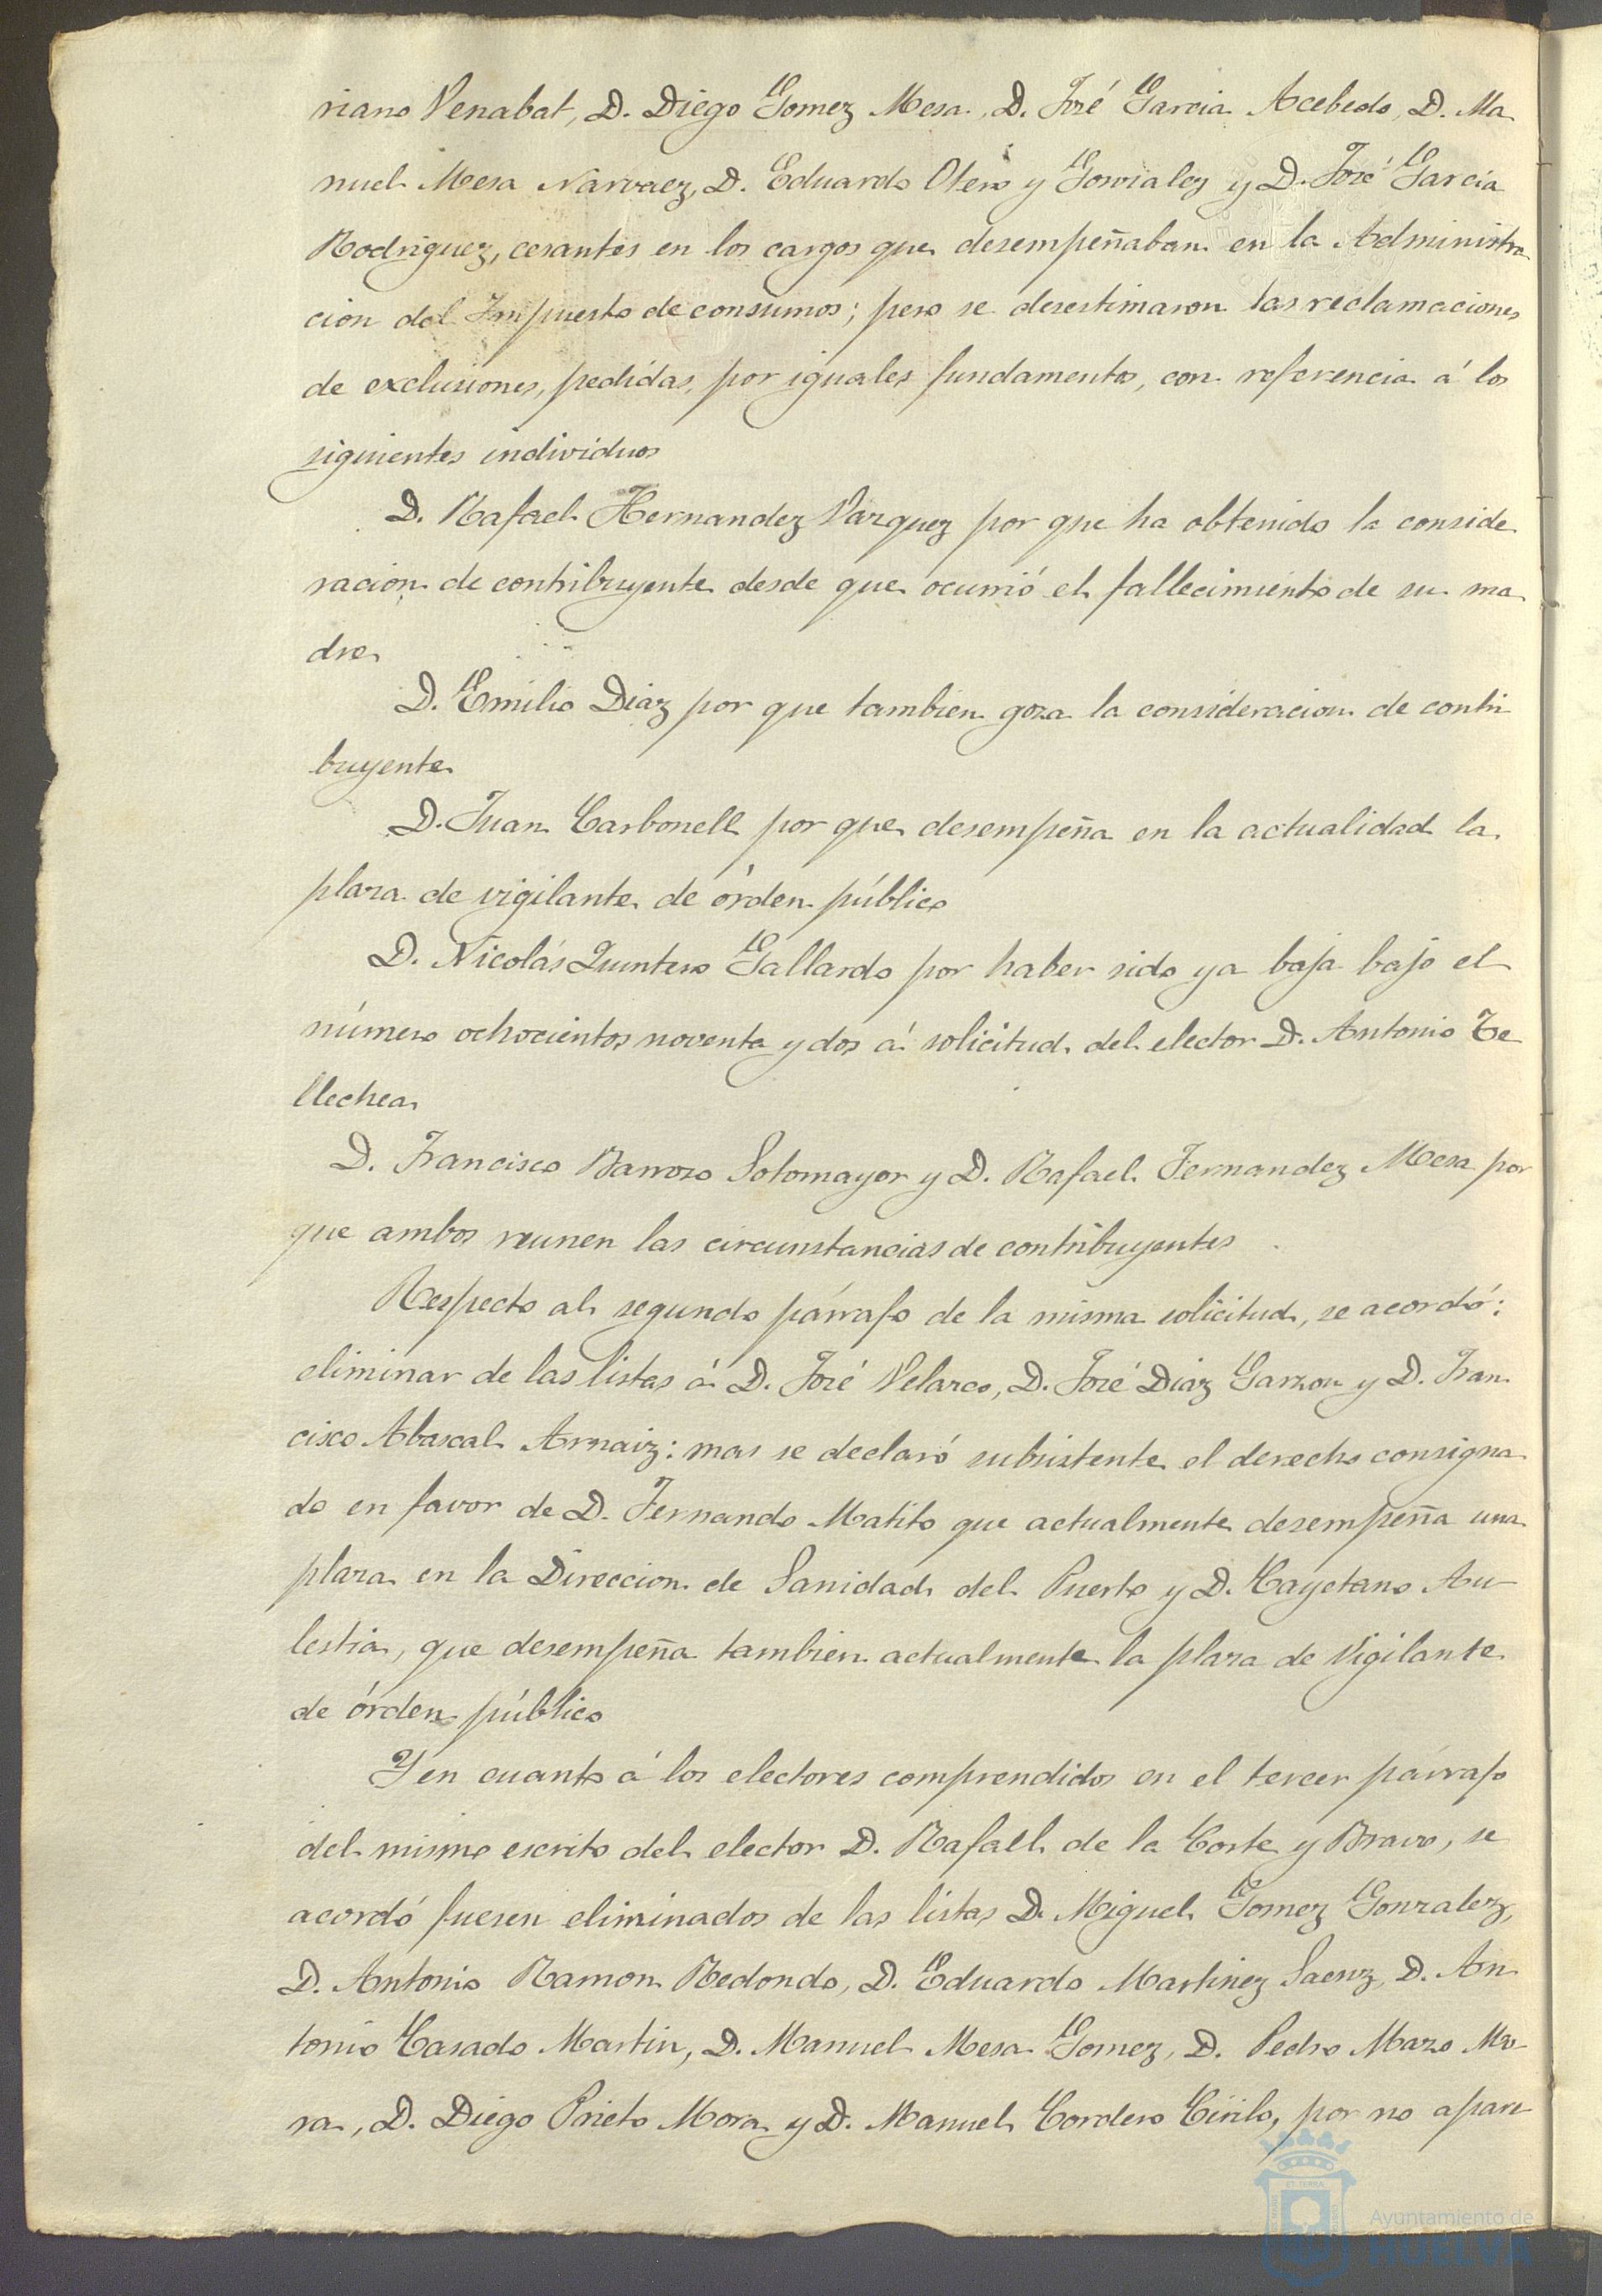 riano Venabat, D. Diego Gomez Mesa, D. José Garcia Acebedo, D. Ma
nuel Mesa Narvaez, D. Eduardo Otero y Gonzalez y D. José Garcia
Rodriguez, cesantes en los cargos que desempeñaban en la Administra
cion del Impuesto de consumos; pero se desestimaron las reclamaciones
de exclusiones, pedidas, por iguales fundamentos, con referencia á los
siguientes individuos
D. Rafael Hernandez Vazquez por que ha obtenido la conside
racion de contribuyente desde que ocurrió el fallecimiento de su ma
dre
D. Emilio Diaz por que tambien goza la consideracion de contri
buyente
D. Juan Carbonell por que desempeña en la actualidad la
plaza de vigilante de órden público
D. Nicolás Quintero Gallardo por haber sido ya baja bajo el
número ochocientos noventa y dos á solicitud del elector D. Antonio Te
llechea
D. Francisco Barroso Sotomayor y D. Rafael Fernandez Mesa por
que ambos reunen las circunstancias de contribuyentes
Respecto al segundo párrafo de la misma solicitud, se acordó:
eliminar de las listas á D. José Velarco, D. José Diaz Garzon y D. Fran
cisco Abascal Arnaiz: mas se declaró subsistente el derecho consigna
do en favor de D. Fernando Matito que actualmente desempeña una
plaza en la Direccion de Sanidad del Puerto y D. Cayetano Au
lestia, que desempeña tambien actualmente la plaza de Vigilante
de órden público
Y en cuanto á los electores comprendidos en el tercer párrafo
del mismo escrito del elector D. Rafael de la Corte y Bravo, se
acordó fuesen eliminados de las listas D. Miguel Gomez Gonzalez,
D. Antonio Ramon Redondo, D. Eduardo Martinez Saenz, D. An
tonio Casado Martin, D. Manuel Mesa Gomez, D. Pedro Mazo Mo-
ra, D. Diego Prieto Mora y D. Manuel Cordero Cirilo, por no apare
Ayuntamiento de
HUELVA